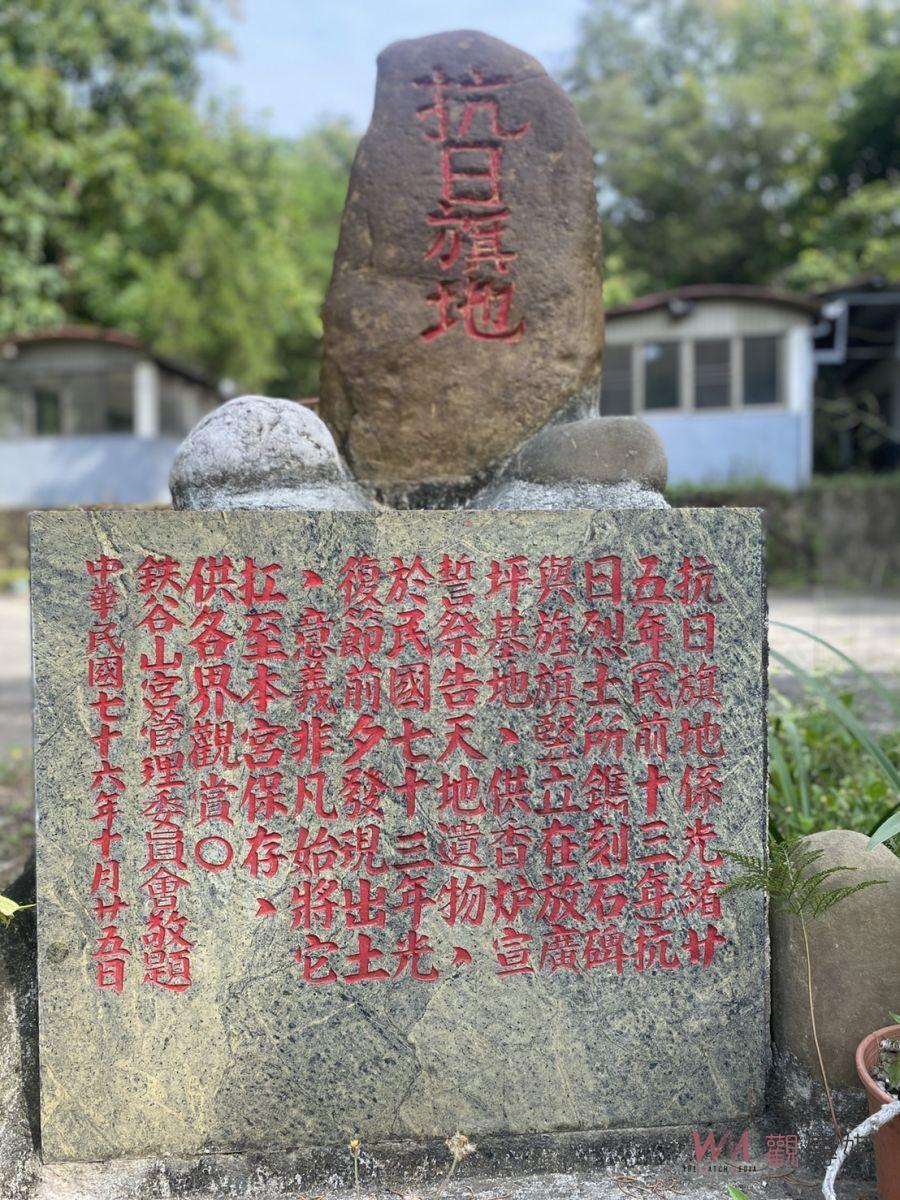 抗日旗地
抗日旗地係光緒廿
五年(民前十三年)抗
日烈士所鐫刻石碑
與旌旗堅立在放廣
坪基地、供香炉宣
誓祭告天地遺物、
於民國七十三年光
復節前夕發現出土
、意義非凡始將它
扛至本宮保存、
供各界觀賞○
鉄谷山宮管理委員會敬題
中華民國七十六年十月廿五日
WA 觀